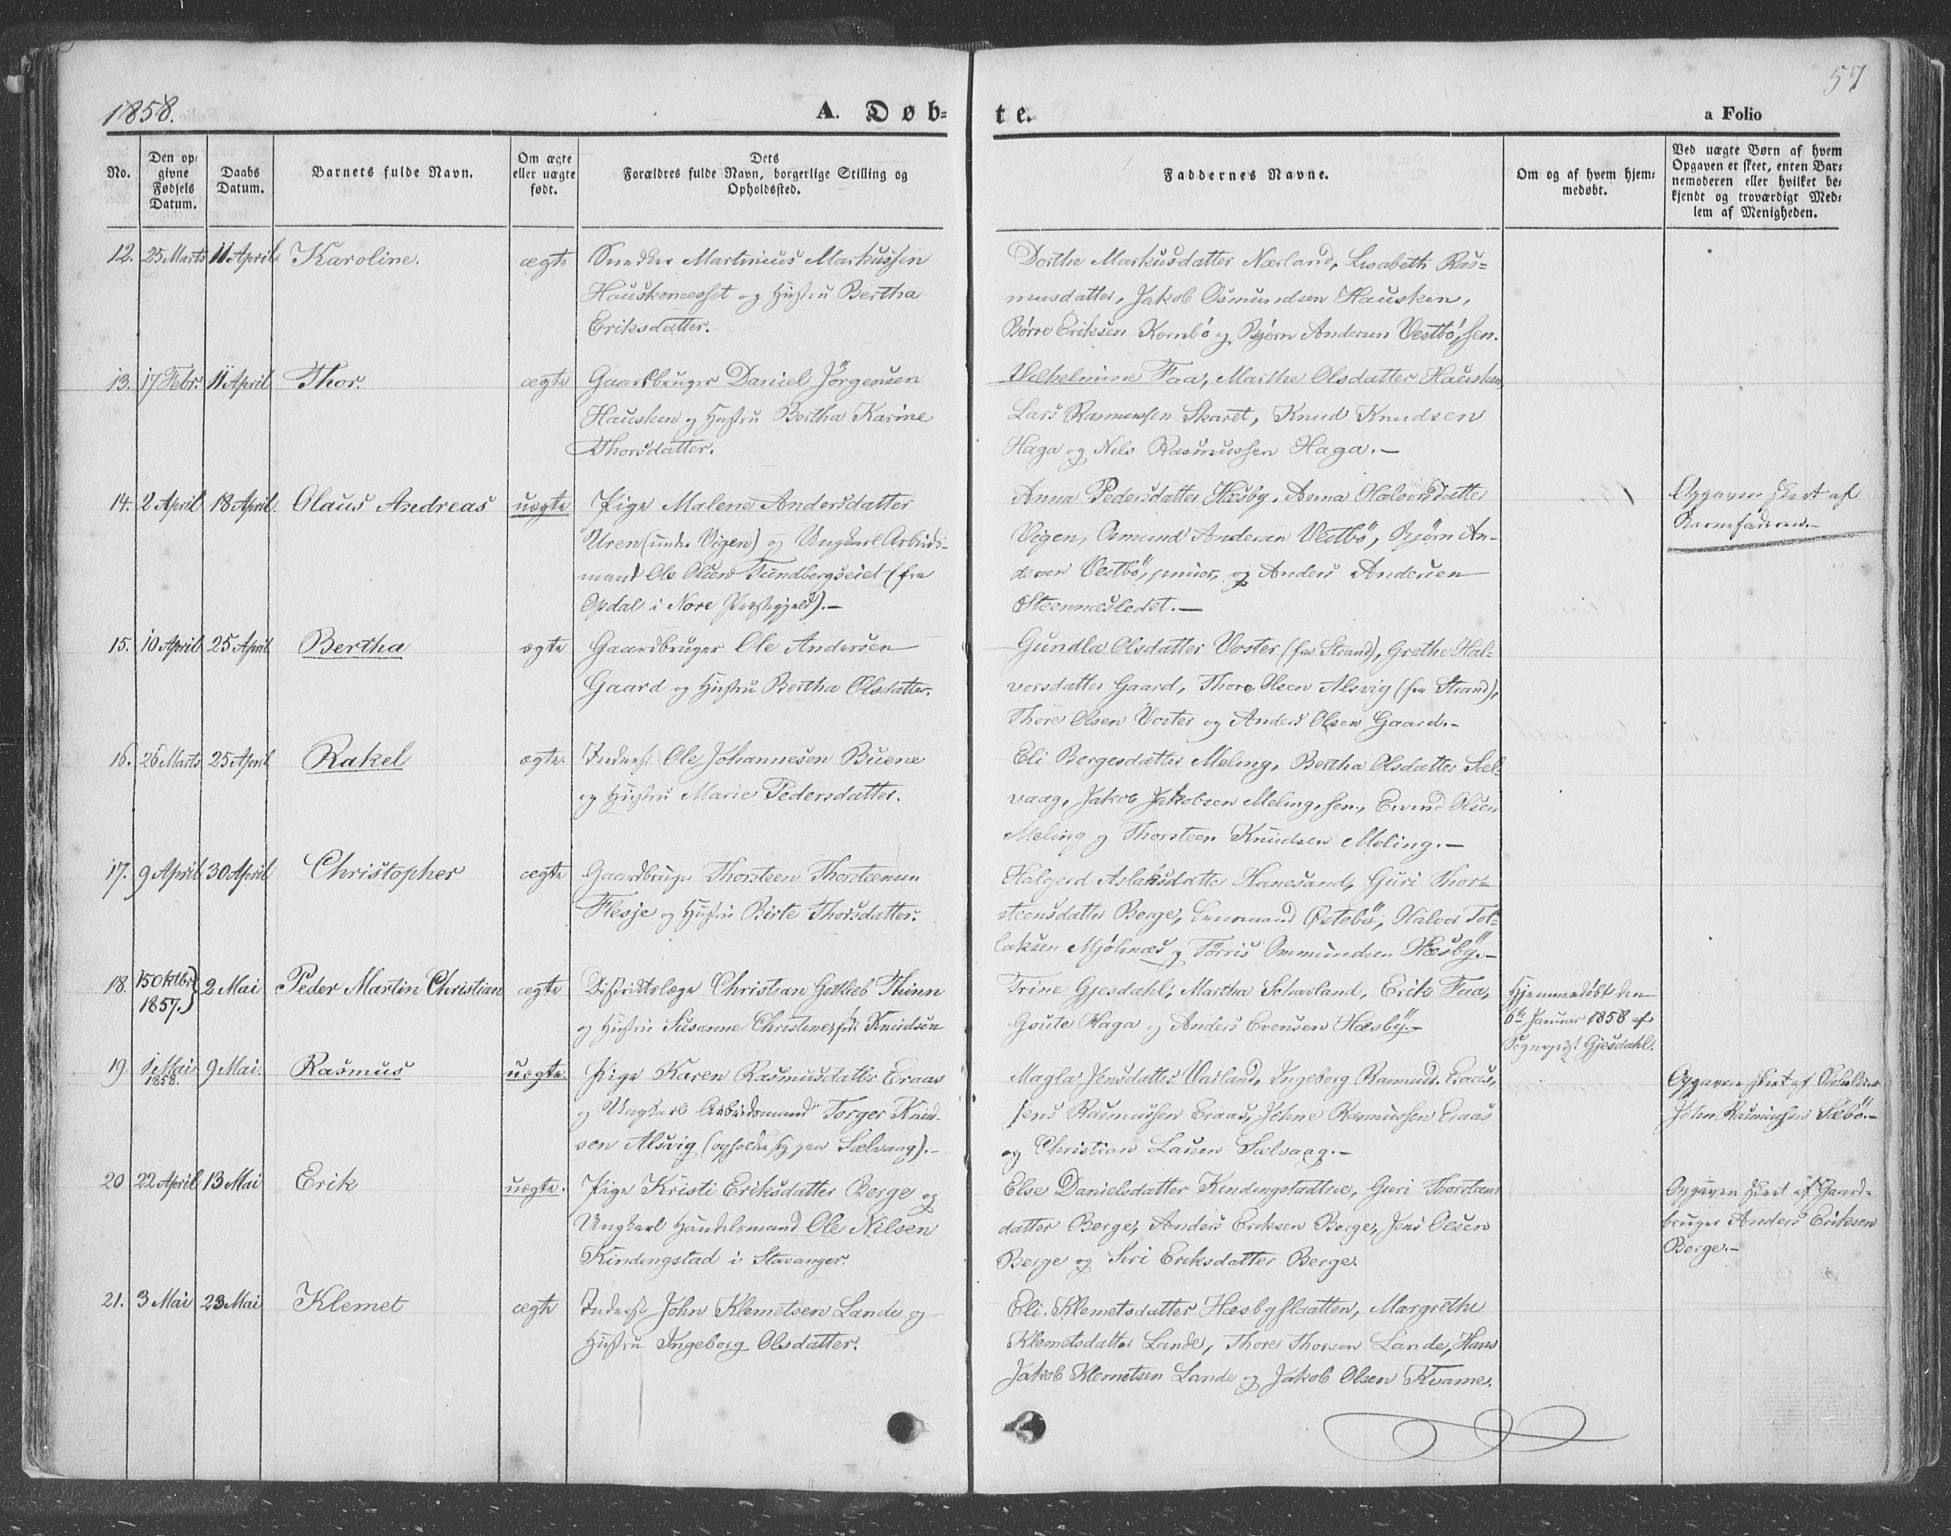 1858.
A. Døb-
te.
57
a Folio
No.
Den op-
givne
Fødsels
Datum.
Daabs
Datum.
Barnets fulde Navn.
Om ægte
eller uægte
født.
Dets
Forældres fulde Navn, borgerlige Stilling og
Opholdssted.
Faddernes Navne.
Om og af hvem hjem-
medøbt.
Ved uægte Børn af hvem
Opgaven er skeet, enten Bar-
nemoderen eller hvilket be-
kjendt og troværdigt Med-
lem af Menigheden.
12. 25 Marts 11 April Karoline. ægte Snedker Martinius Markussen
Hauskenæsset og Hustru Bertha
Eriksdatter.
Dorthe Markusdatter Nærland, Lisabeth Ras-
musdatter, Jakob Osmundsen Hausken,
Børre Eriksen Kombø og Bjørn Andersen Vestbø, sen.
13. 17 Febr. 11 April Thor. ægte Gaardbruger Daniel Jörgensen
Hausken og Hustru Bertha Karine
Thorsdatter.
Vilhelmine Faa, Marthe Olsdatter Hausken,
Lars Rasmussen Skaret, Knud Knudsen
Haga og Nils Rasmussen Haga.—
14. 2 April 18 April Olaus Andreas uægte Pige Malene Andersdatter
Uren (under Vigen) og Ungkarl Arbeids-
mand Ole Olsen Tundbergseiet (fra
Opdal i Nore Præstegjeld).—
Anna Pedersdatter Hæsby, Anna Halvorsdatter
Vigen, Osmund Andersen Vestbö, Bjørn An-
dersen Vestbö, junior, og Anders Andersen
Steennesledet.—
Opgaven skeet af
Barnefaderen.—
15. 10 April 25 April Bertha ægte Gaardbruger Ole Andersen
Gaard og Hustru Bertha Olsdatter.
Gundla Olsdatter Voster (fra Strand), Grethe Hal-
vorsdatter Gaard, Thore Olsen Alsvig (fra Strand),
Thore Olsen Voster og Anders Olsen Gaard.—
16. 26 Marts 25 April Rakel ægte. Inderst Ole Johannesen Buene
og Hustru Marie Pedersdatter.
Eli Bergesdatter Meling, Bertha Olsdatter Sæl-
vaag, Jakob Jakobsen Meling, sen., Eivind Olsen
Meling og Thorsteen Knudsen Meling.—
17. 9 April 30 April Christopher ægte Gaardbruger Thorsteen Thorsteensen
Flesje og Hustru Birte Thorsdatter.
Halgerd Aslaksdatter Hanesand, Guri Thor-
steensdatter Berge, Østebö, Halvor Tol-
laksen Mjölsnæs og Torris Ommundsen Hæsby.—
18. 15 Oktbr. 1857.} 2 Mai Peder Martin Christian ægte Distriktslæge Christian Gottlieb Thinn
og Hustru Susanne Christine, født Knudsen
Trine Gjesdahl, Martha Scharland, Erik Faa,
Goute Haga og Anders Evensen Hæsby.—
Hjemmedøbt den
6te Januar 1858 af
Sognepræst Gjesdahl.
19 1 Mai 1858. 9 Mai. Rasmus uægte. Pige Karen Rasmusdatter Eraas
og Ungkarl Arbeidsmand Torger Knud-
sen Alsvig (opholdende sig paa Sælvaag).—
Magla Jensdatter Varland, Ingeborg Rasmusd. Eraas,
Jens Rasmussen Eraas, Johne Rasmussen Eraas
og Christian Larsen Sælvaag.—
Opgaven skeet af
John Rasmussen Sæbö.—
20 22 April 13 Mai Erik uægte. Pige Kristi Eriksdatter Berge og
Ungkarl Handelsmand Ole Nilsen
Kindingstad i Stavanger.
Else Danielsdatter Kindingstadhie, Guri Thorsteens
datter Berge, Anders Eriksen Berge, Jens Olsen
Berge og Siri Eriksdatter Berge.
Opgaven skeet af Gaard-
bruger Anders Eriksen
Berge.—
21. 3 Mai 23 Mai Klemet ægte Inderst John Klemetsen Lande og
Hustru Ingeborg Olsdatter.
Eli Klemetsdatter Hæsbyflaatten, Margrethe
Klemetsdatter Lande, Thore Thorsen Lande, Hans
Jakob Klemetsen Lande og Jakob Olsen Kvame.